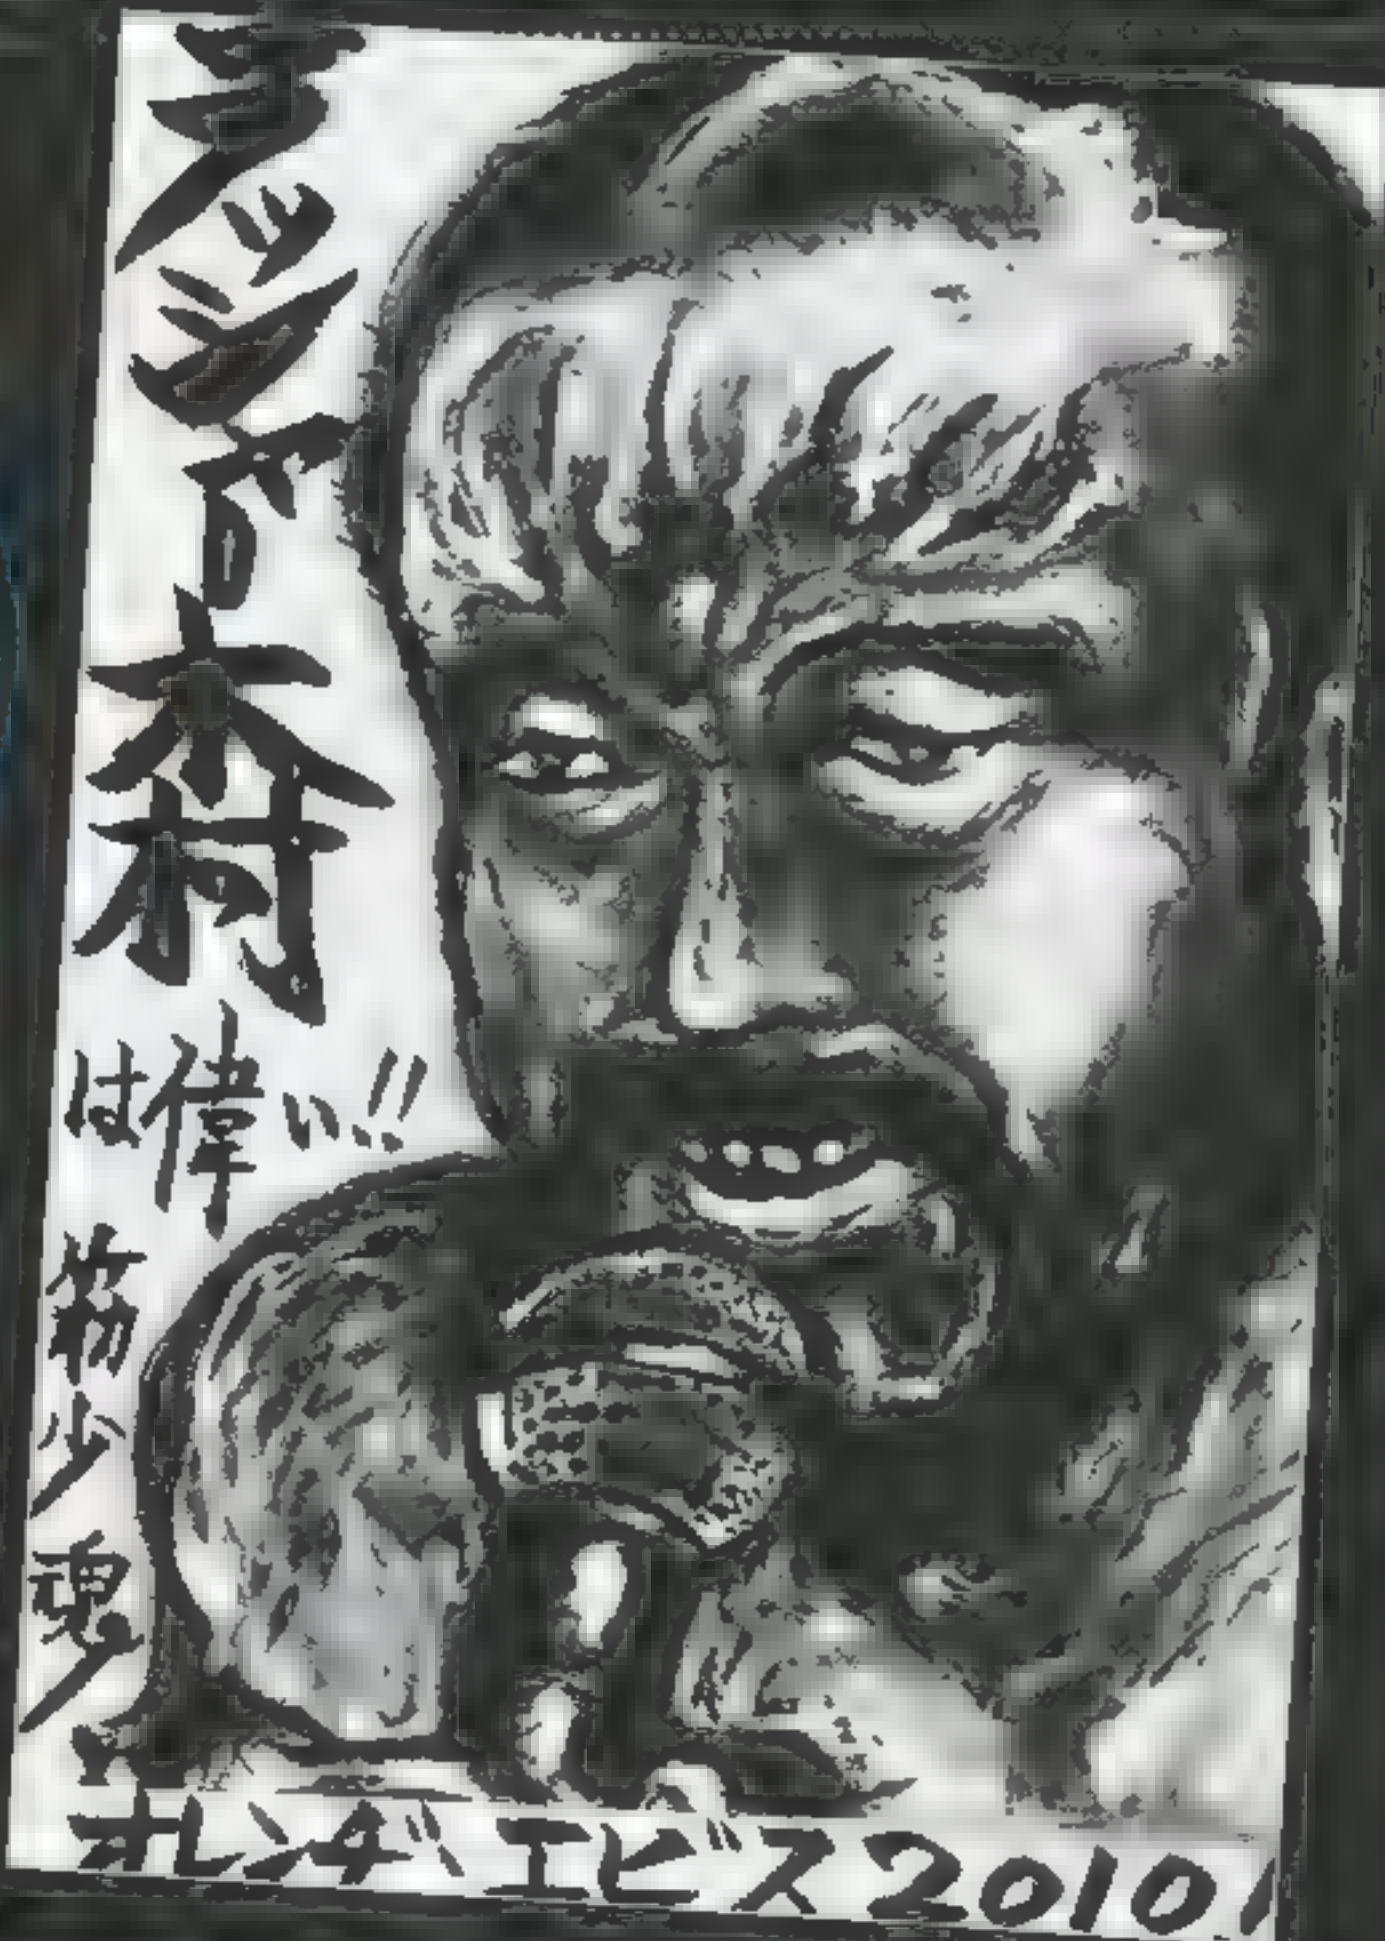 ラッシャー木村
は偉い!!
筋少魂
オレンヂエビス2010